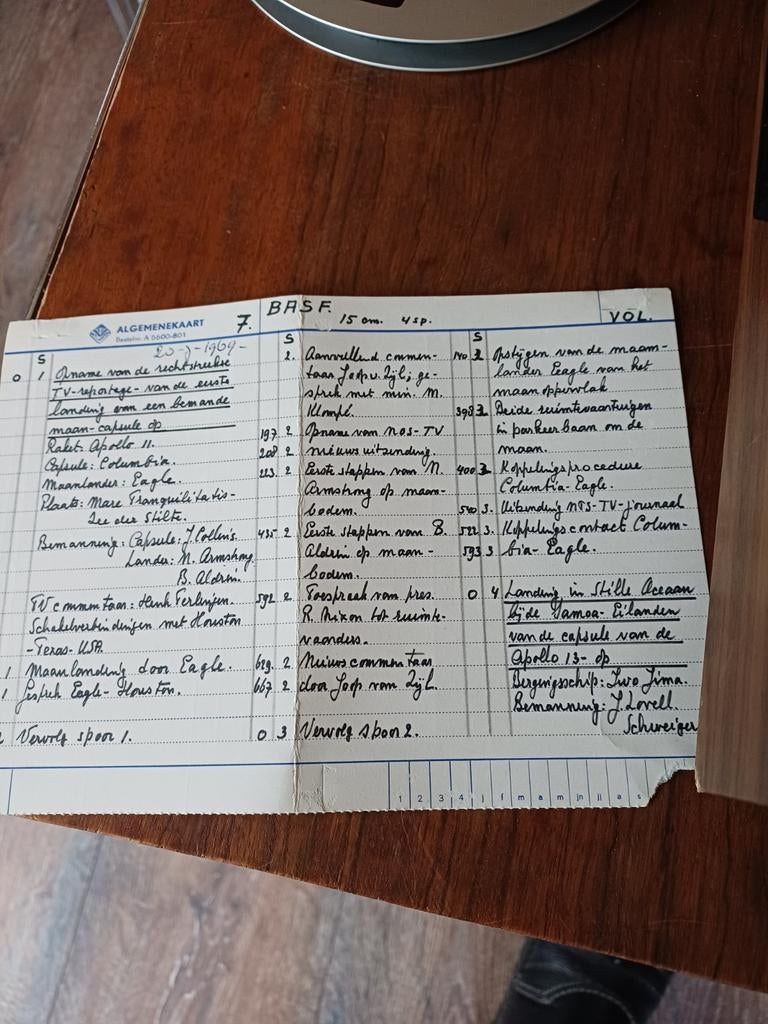 ALGEMENEKAART
Bestelnr. A 5600-801
7.
BASF.
15 cm. 4 sp.
VOL.
20-7-1969-
S
0 1 Opname van de rechtstreekse
TV-reportage van de eerste
landing van een bemande
maan-capsule op
Raket: Apollo 11.
Capsule: Columbia.
Maanlander: Eagle.
Plaats: Mare Tranquilitatis-
Zee der Stilte.
Bemanning: Capsule: J. Collins.
Lander: N. Armstrong
B. Aldrin.
TV commentaar: Henk Terlingen.
Schakelverbindingen met Houston
-Texas-USA.
1 Maanlanding door Eagle.
1 Gesprek Eagle-Houston.
Vervolg spoor 1.
S
2. Aanvullend commen-
taar Joop v. Zijl; ge-
sprek met min. M.
Klompé.
197 2 Opname van NOS-TV
208 2 nieuwsuitzending.
223. 2 Eerste stappen van N.
Armstrong op maan-
bodem.
435 2 Eerste stappen van B.
Aldrin op maan-
bodem.
592 2 Toespraak van pres.
R. Nixon tot ruimte-
vaarders.
629. 2 Nieuws commentaar
667 2 door Joop van Zijl.
0 3 Vervolg spoor 2.
S
140 3 Opstijgen van de maan-
lander Eagle van het
maanoppervlak.
398 3 Beide ruimtevaartuigen
in parkeerbaan om de
maan.
400 3 Koppelingsprocedure
Columbia-Eagle.
540 3. Uitzending NTS-TV-journaal
522 3. Koppelingscontact Colum-
593 3 bia-Eagle.
0 4 Landing in Stille Oceaan
bij de Samoa-Eilanden
van de capsule van de
Apollo 13-op
Bergingsschip: Iwo Jima.
Bemanning: J. Lovell.
Schweiger
1 2 3 4 j f m a m jn jl a s